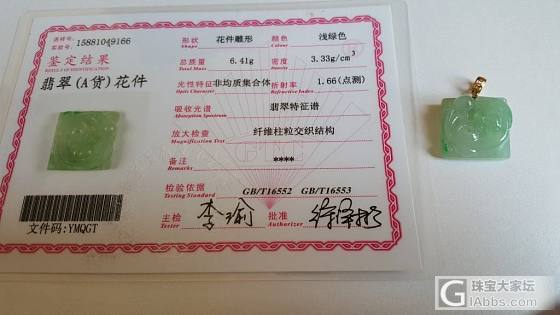 谨峰号: 15881049166
鉴定结果
RESULT OF IDENTIFICATION
翡翠(A货)花件
文件码: YMQGT
形状 花件雕形 颜色 浅绿色
Shape Colour
总质量 6.41g 密度 3.33g/cm³
Total Mass Density
光性特征 非均质集合体 折射率 1.66(点测)
Optic Character Refractive Index
吸收光谱 翡翠特征谱
Absorption Spectrum
放大检查 纤维柱粒交织结构
Magnification Test
备注 ****
Remarks
检验依据 GB/T16552 GB/T16553
Testing Standard
主检 李瑜 批准
Tester Authorizer
珠宝大家坛
GIAbbs.com